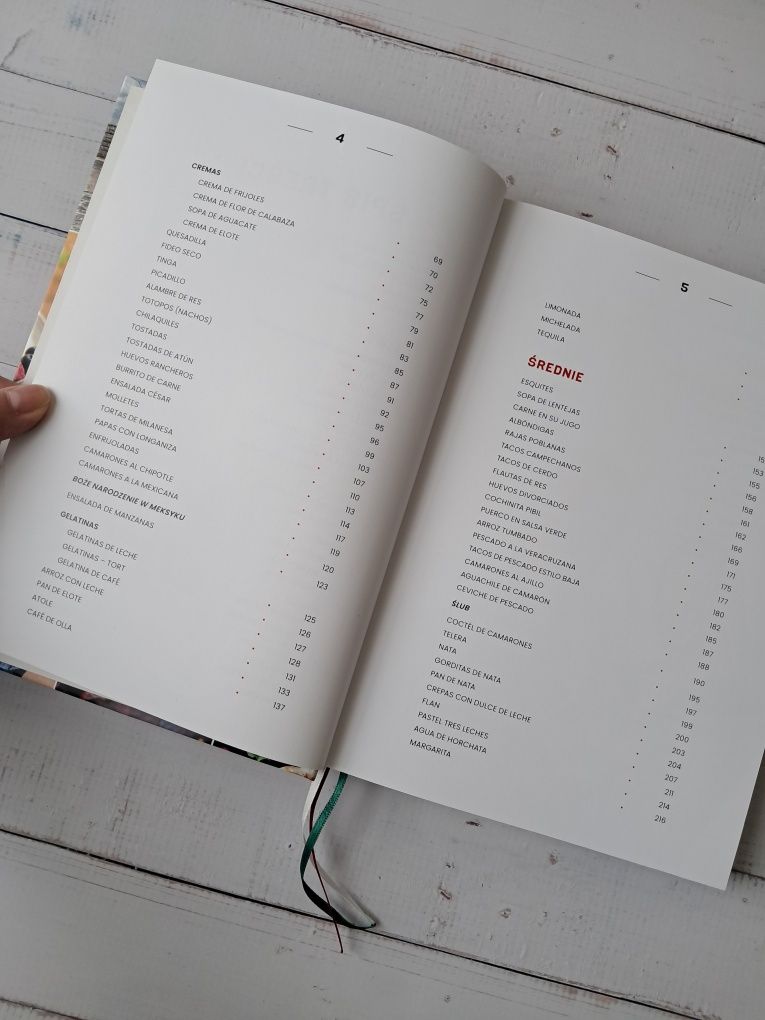 4
CREMAS
CREMA DE FRIJOLES 69
CREMA DE FLOR DE CALABAZA 70
SOPA DE AGUACATE 72
CREMA DE ELOTE 75
QUESADILLA 77
FIDEO SECO 79
TINGA 81
PICADILLO 83
ALAMBRE DE RES 85
TOTOPOS (NACHOS) 87
CHILAQUILES 91
TOSTADAS 92
TOSTADAS DE ATÚN 95
HUEVOS RANCHEROS 96
BURRITO DE CARNE 99
ENSALADA CÉSAR 103
MOLLETES 107
TORTAS DE MILANESA 110
PAPAS CON LONGANIZA 113
ENFRIJOLADAS 114
CAMARONES AL CHIPOTLE 117
CAMARONES A LA MEXICANA 119
BOŻE NARODZENIE W MEKSYKU 120
ENSALADA DE MANZANAS 123
GELATINAS
GELATINAS DE LECHE 125
GELATINAS – TORT 126
GELATINA DE CAFÉ 127
ARROZ CON LECHE 128
PAN DE ELOTE 131
ATOLE 133
CAFÉ DE OLLA 137
5
LIMONADA
MICHELADA
TEQUILA
ŚREDNIE
ESQUITES
SOPA DE LENTEJAS 153
CARNE EN SU JUGO 155
ALBÓNDIGAS 156
RAJAS POBLANAS 158
TACOS CAMPECHANOS 161
TACOS DE CERDO 162
FLAUTAS DE RES 166
HUEVOS DIVORCIADOS 169
COCHINITA PIBIL 171
PUERCO EN SALSA VERDE 175
ARROZ TUMBADO 177
PESCADO A LA VERACRUZANA 180
TACOS DE PESCADO ESTILO BAJA 182
CAMARONES AL AJILLO 185
AGUACHILE DE CAMARÓN 187
CEVICHE DE PESCADO 188
ŚLUB 190
COCTÉL DE CAMARONES 195
TELERA 197
NATA 199
GORDITAS DE NATA 200
PAN DE NATA 203
CREPAS CON DULCE DE LECHE 204
FLAN 207
PASTEL TRES LECHES 211
AGUA DE HORCHATA 214
MARGARITA 216